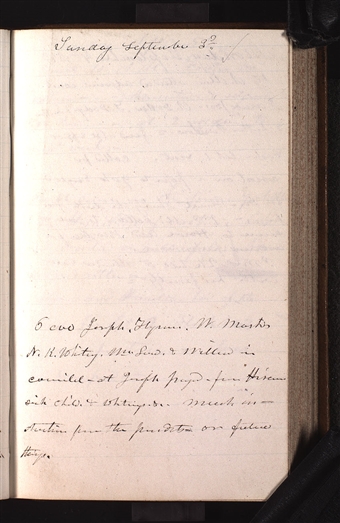 Sunday September 3d
6 eve Joseph, Hyrum, W. Marks
N. K. Whitney, Mrs Law. & Willard in
council - at Joseph prayd - for Hiram
sick child. & Whitneys do. Much in-
struction from the president on future
things.